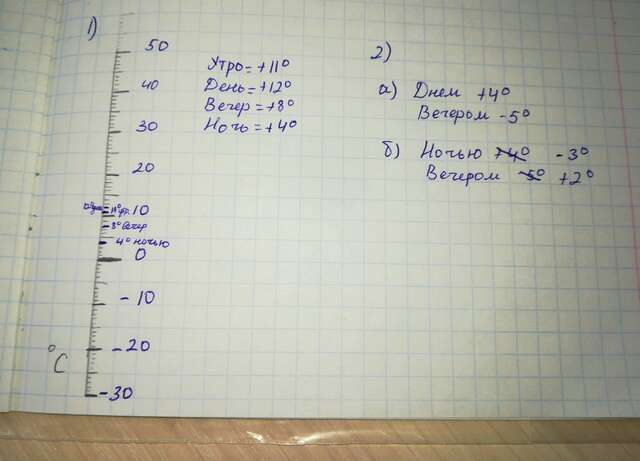 1)
50
40
30
20
11° ут. 10
8° вечер
4° ночью
0
-10
-20
-30
°C
Утро = +11°
День = +12°
Вечер = +8°
Ночь = +4°
2)
а) Днем +4°
Вечером -5°
б) Ночью +4° -3°
Вечером -5° +2°